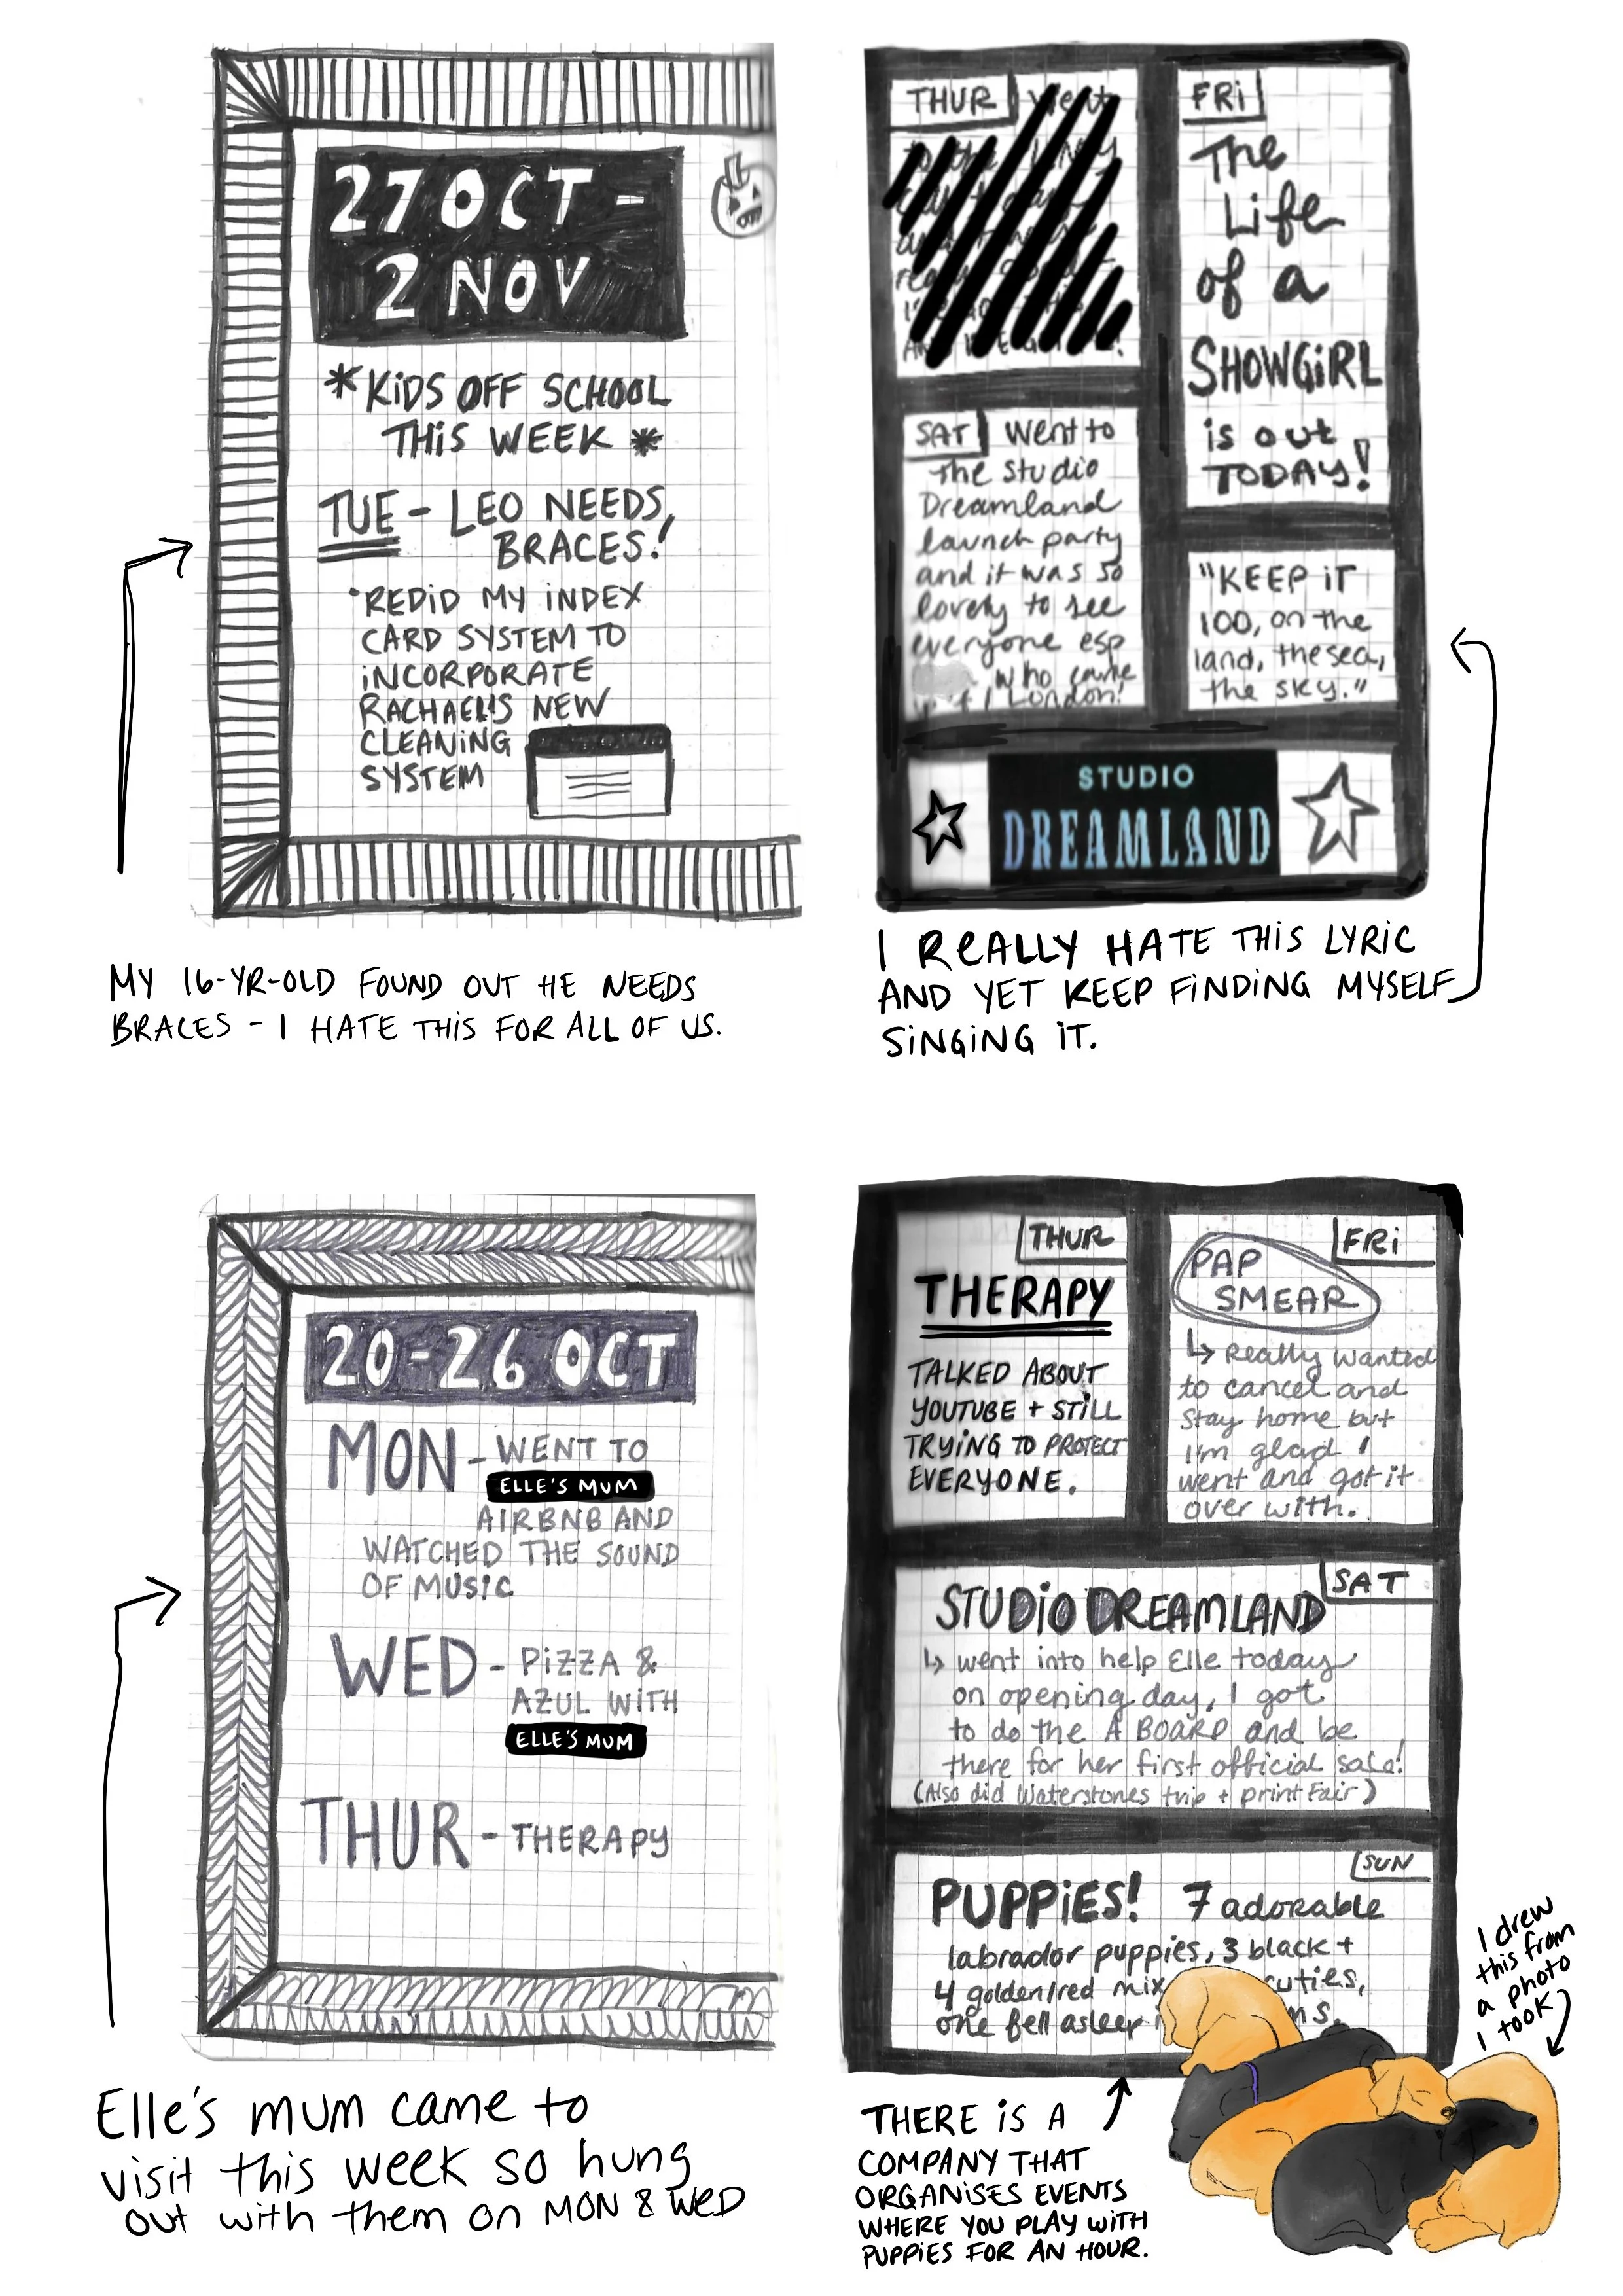 27 OCT -
2 NOV
*KIDS OFF SCHOOL
THIS WEEK *
TUE - LEO NEEDS
BRACES!
*REDID MY INDEX
CARD SYSTEM TO
INCORPORATE
RACHAEL'S NEW
CLEANING
SYSTEM
MY 16-YR-OLD FOUND OUT HE NEEDS
BRACES - I HATE THIS FOR ALL OF US.
THUR
SAT Went to
the studio
Dreamland
launch party
and it was so
lovely to see
everyone esp
who came
London!
FRI
The
Life
of a
SHOWGIRL
is out
TODAY!
"KEEP IT
100, on the
land, the sea,
the sky."
STUDIO
DREAMLAND
I REALLY HATE THIS LYRIC
AND YET KEEP FINDING MYSELF
SINGING IT.
20-26 OCT
MON - WENT TO
ELLE'S MUM
AIRBNB AND
WATCHED THE SOUND
OF MUSIC
WED - PIZZA &
AZUL WITH
ELLE'S MUM
THUR - THERAPY
Elle's mum came to
visit this week so hung
out with them on MON & WED
THUR
THERAPY
TALKED ABOUT
YOUTUBE + STILL
TRYING TO PROTECT
EVERYONE.
FRI
PAP
SMEAR
↳ Really wanted
to cancel and
stay home but
I'm glad I
went and got it
over with.
SAT
STUDIO DREAMLAND
↳ went into help Elle today
on opening day, I got
to do the A BOARD and be
there for her first official sale!
(Also did Waterstones trip + print Fair)
SUN
PUPPIES! 7 adorable
labrador puppies, 3 black +
4 golden/red mix cuties,
one fell asleep
I drew
this from
a photo
I took
THERE IS A
COMPANY THAT
ORGANISES EVENTS
WHERE YOU PLAY WITH
PUPPIES FOR AN HOUR.